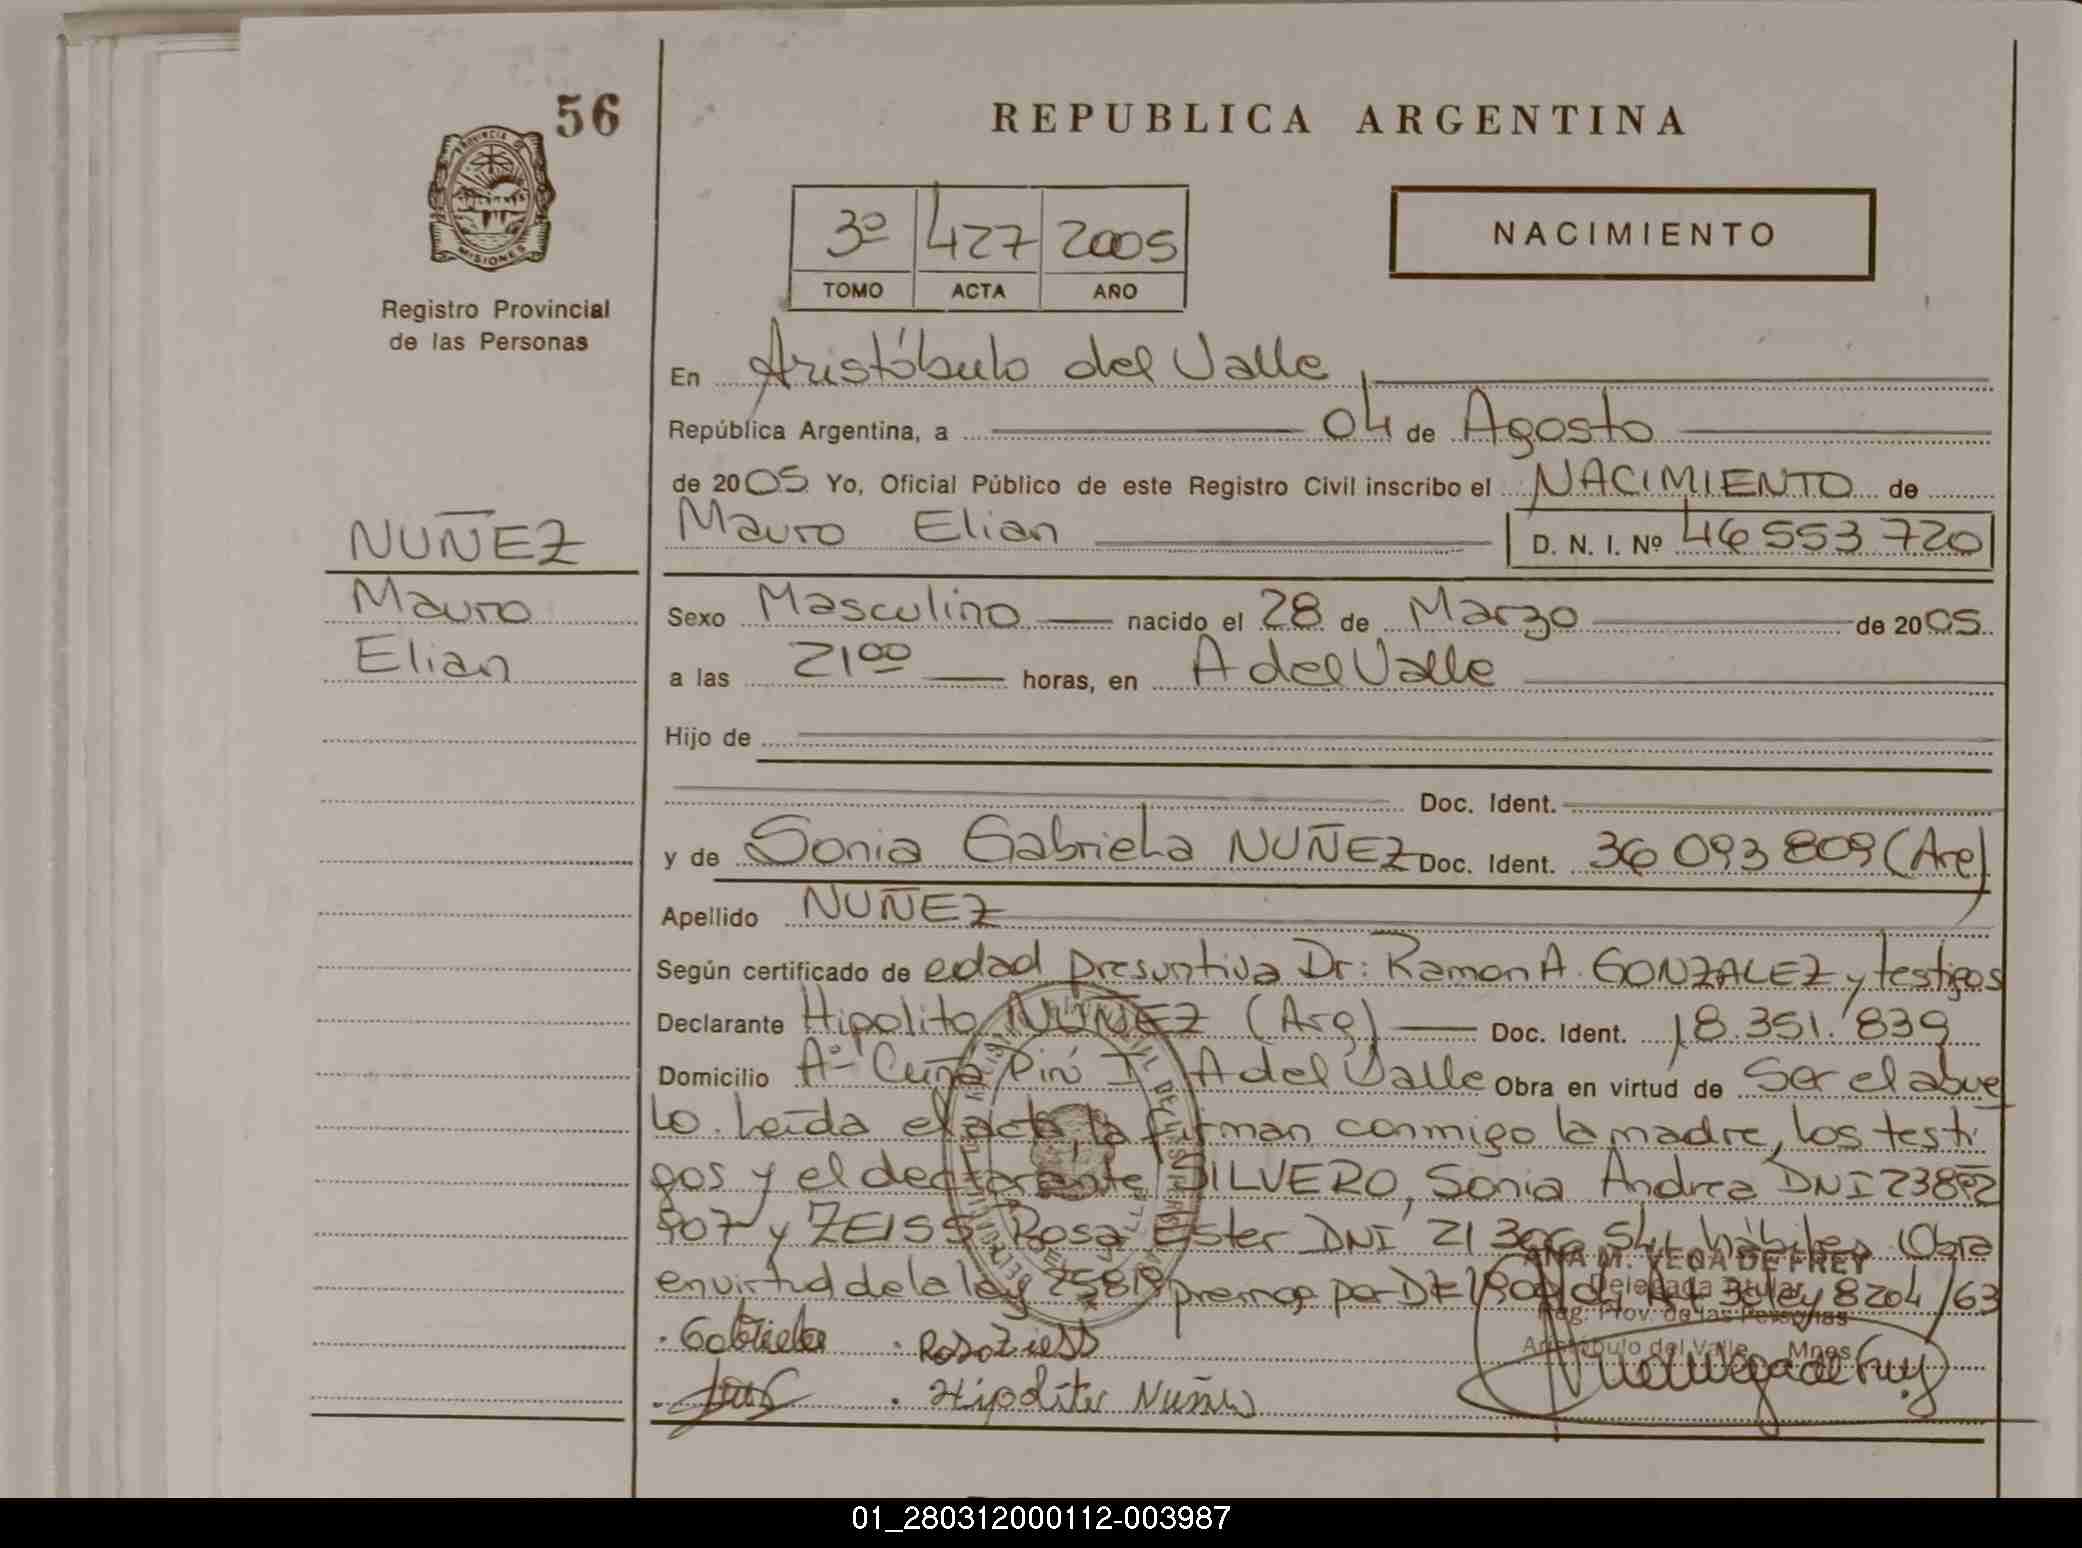 56
PROVINCIA DE
MISIONES
Registro Provincial
de las Personas
NUÑEZ
Mauro
Elian
REPUBLICA ARGENTINA
3º 427 2005
TOMO ACTA AÑO
NACIMIENTO
En Aristóbulo del Valle
República Argentina, a 04 de Agosto
de 2005 Yo, Oficial Público de este Registro Civil inscribo el NACIMIENTO de
Mauro Elian D. N. I. Nº 46 553 720
Sexo Masculino nacido el 28 de Marzo de 2005
a las 2100 horas, en A del Valle
Hijo de
Doc. Ident.
y de Sonia Gabriela NUÑEZ Doc. Ident. 36 093 809 (Arg)
Apellido NUÑEZ
Según certificado de edad presuntiva Dr: Ramon A. GONZALEZ y testigos
Declarante Hipolito NUÑEZ (Arg) Doc. Ident. 18.351.839
Domicilio Aº Cuña Pirú I A del Valle Obra en virtud de Ser el abue
lo. Leída el acta, la firman conmigo la madre, los testi
gos y el declarante SILVERO, Sonia Andrea DNI
907 y ZEISS Rosa Ester DNI 21 hábiles Obra
en virtud de la ley 25819 por ley 8204/63
ANA M. VEGA DE FREY
Delegada Titular
Reg. Prov. de las Personas
Aristóbulo del Valle Mnes.
Gabriela Rosa Zeiss
Hipolito Nuñez
01_280312000112-003987